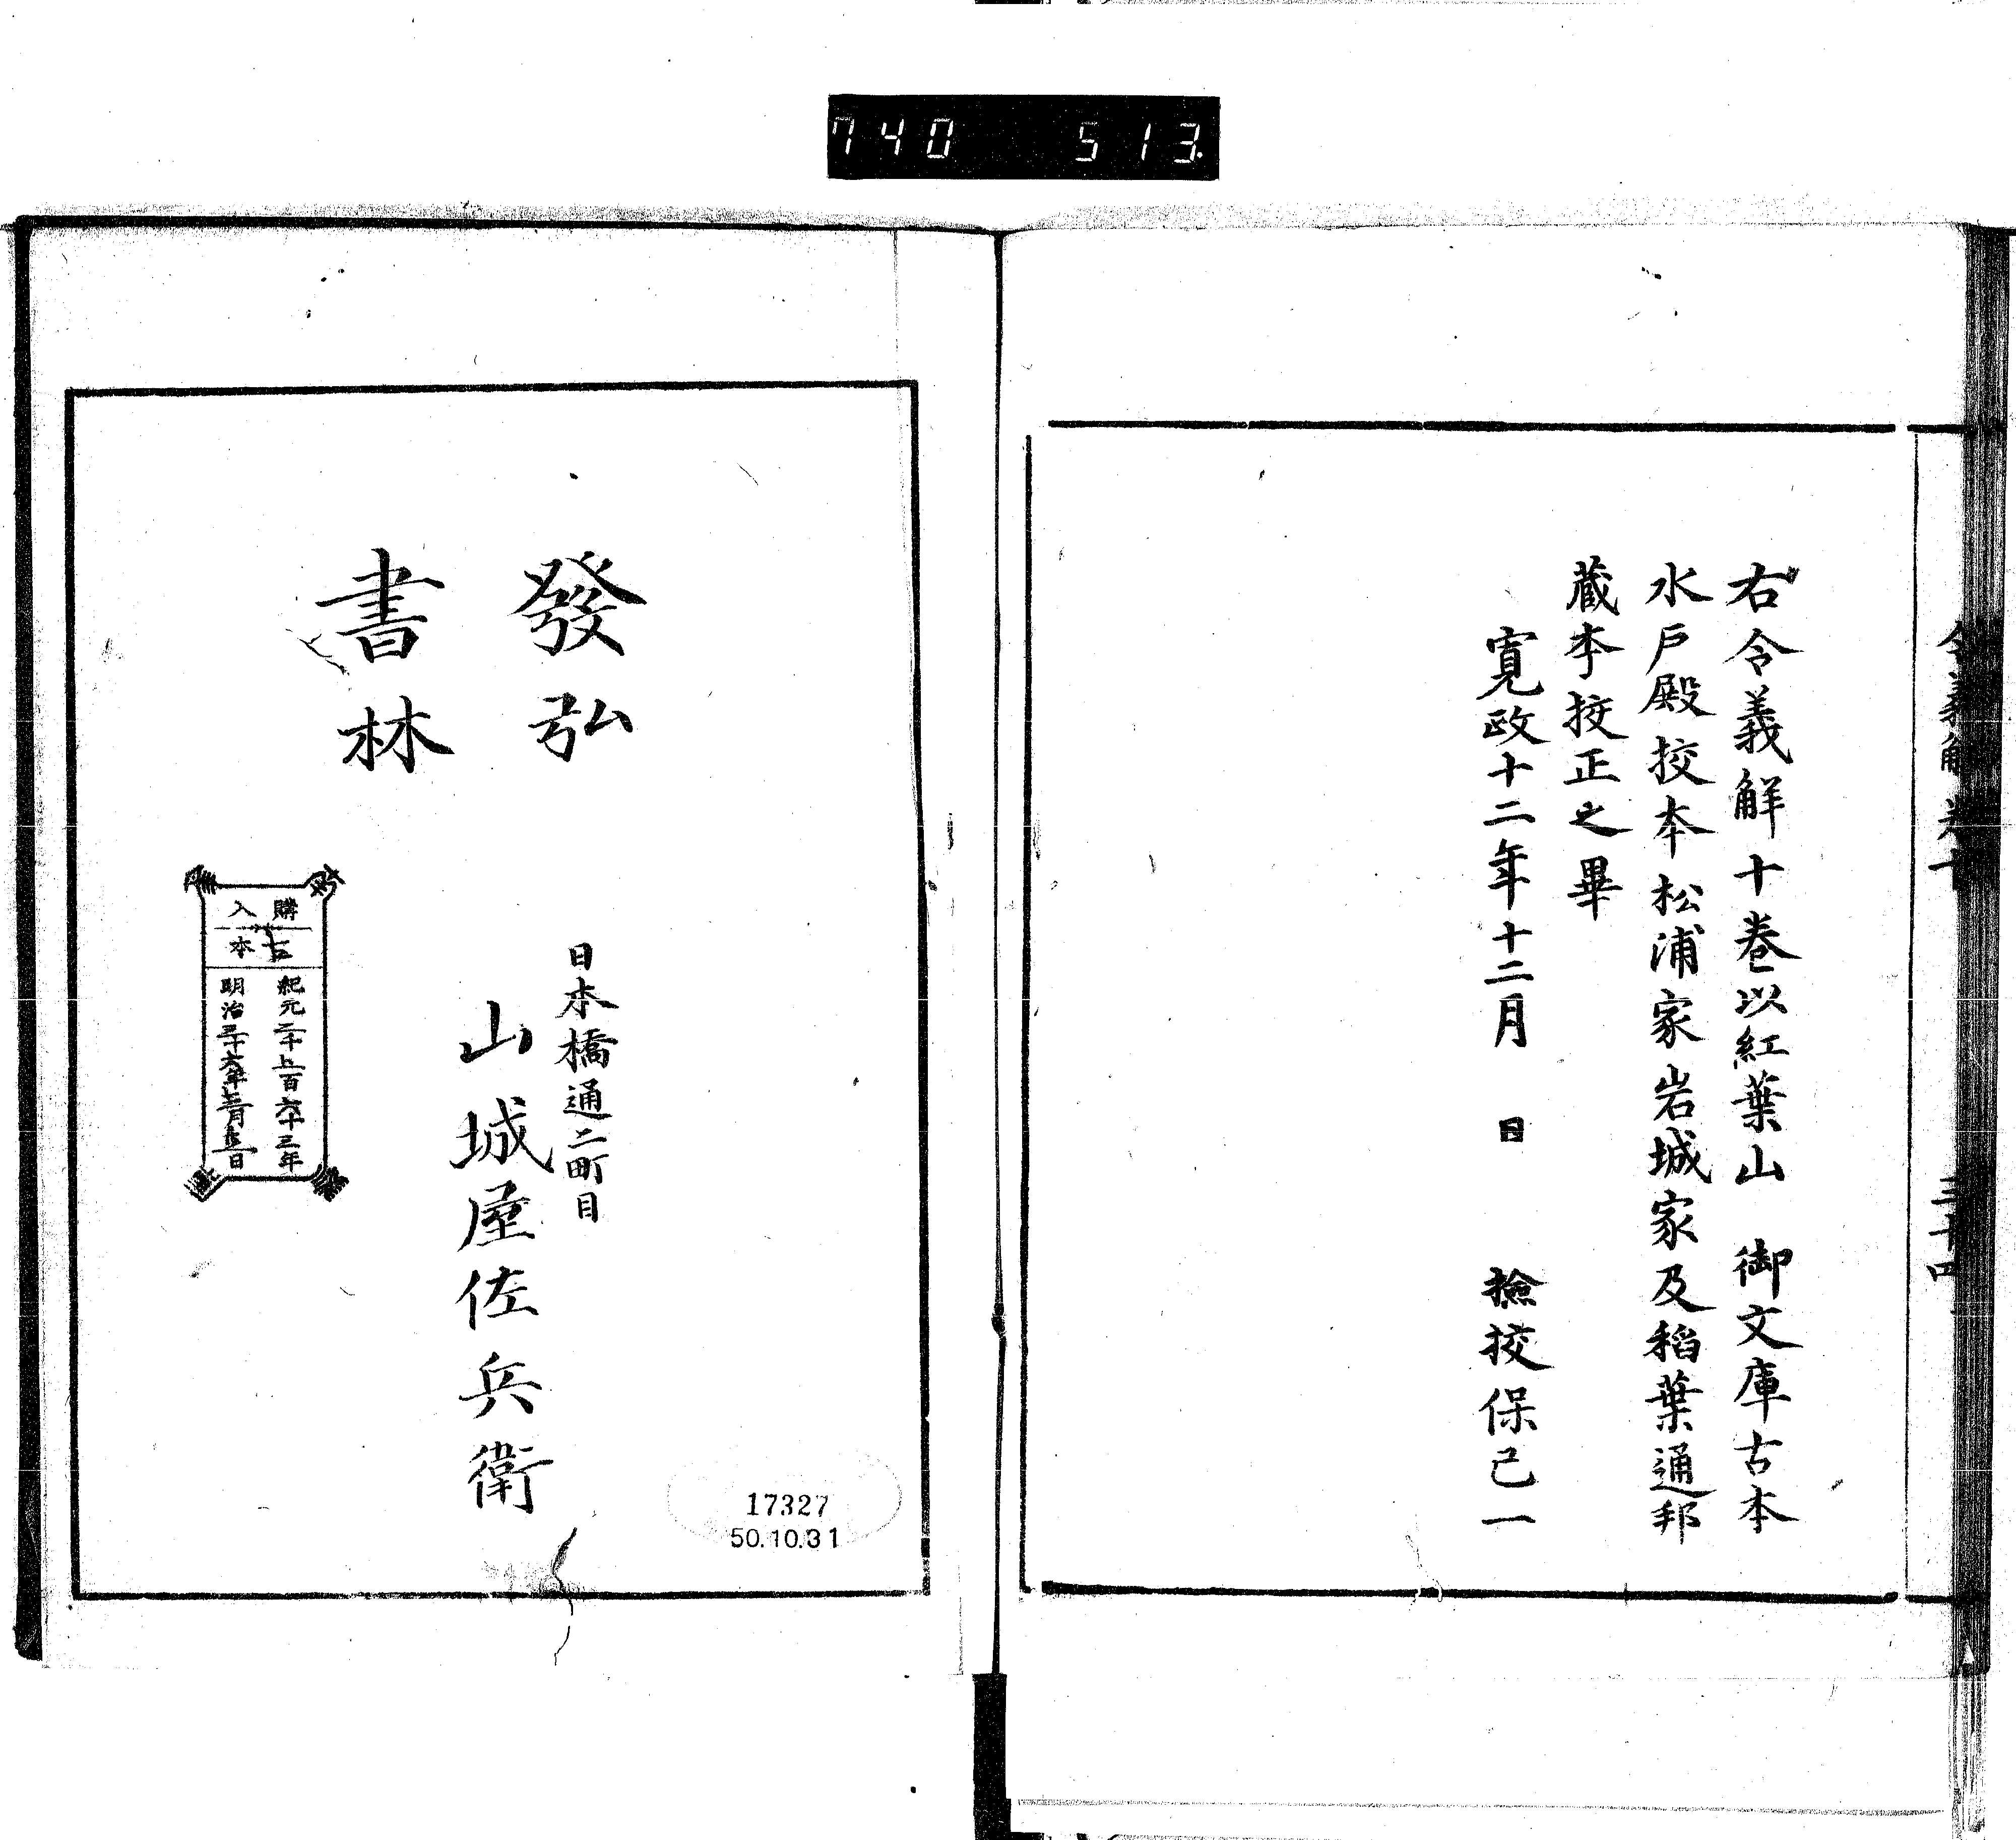 740 513
令義解 卷十 三十四
右令義解十卷以紅葉山 御文庫古本
水戸殿挍本松浦家岩城家及稻葉通邦
蔵本挍正之畢
寛政十二年十二月 日 撿挍保己一
發弘
書林
日本橋通二町目
山城屋佐兵衛
購入
古本
紀元二千五百六十三年
明治三十六年
17327
50.10.31